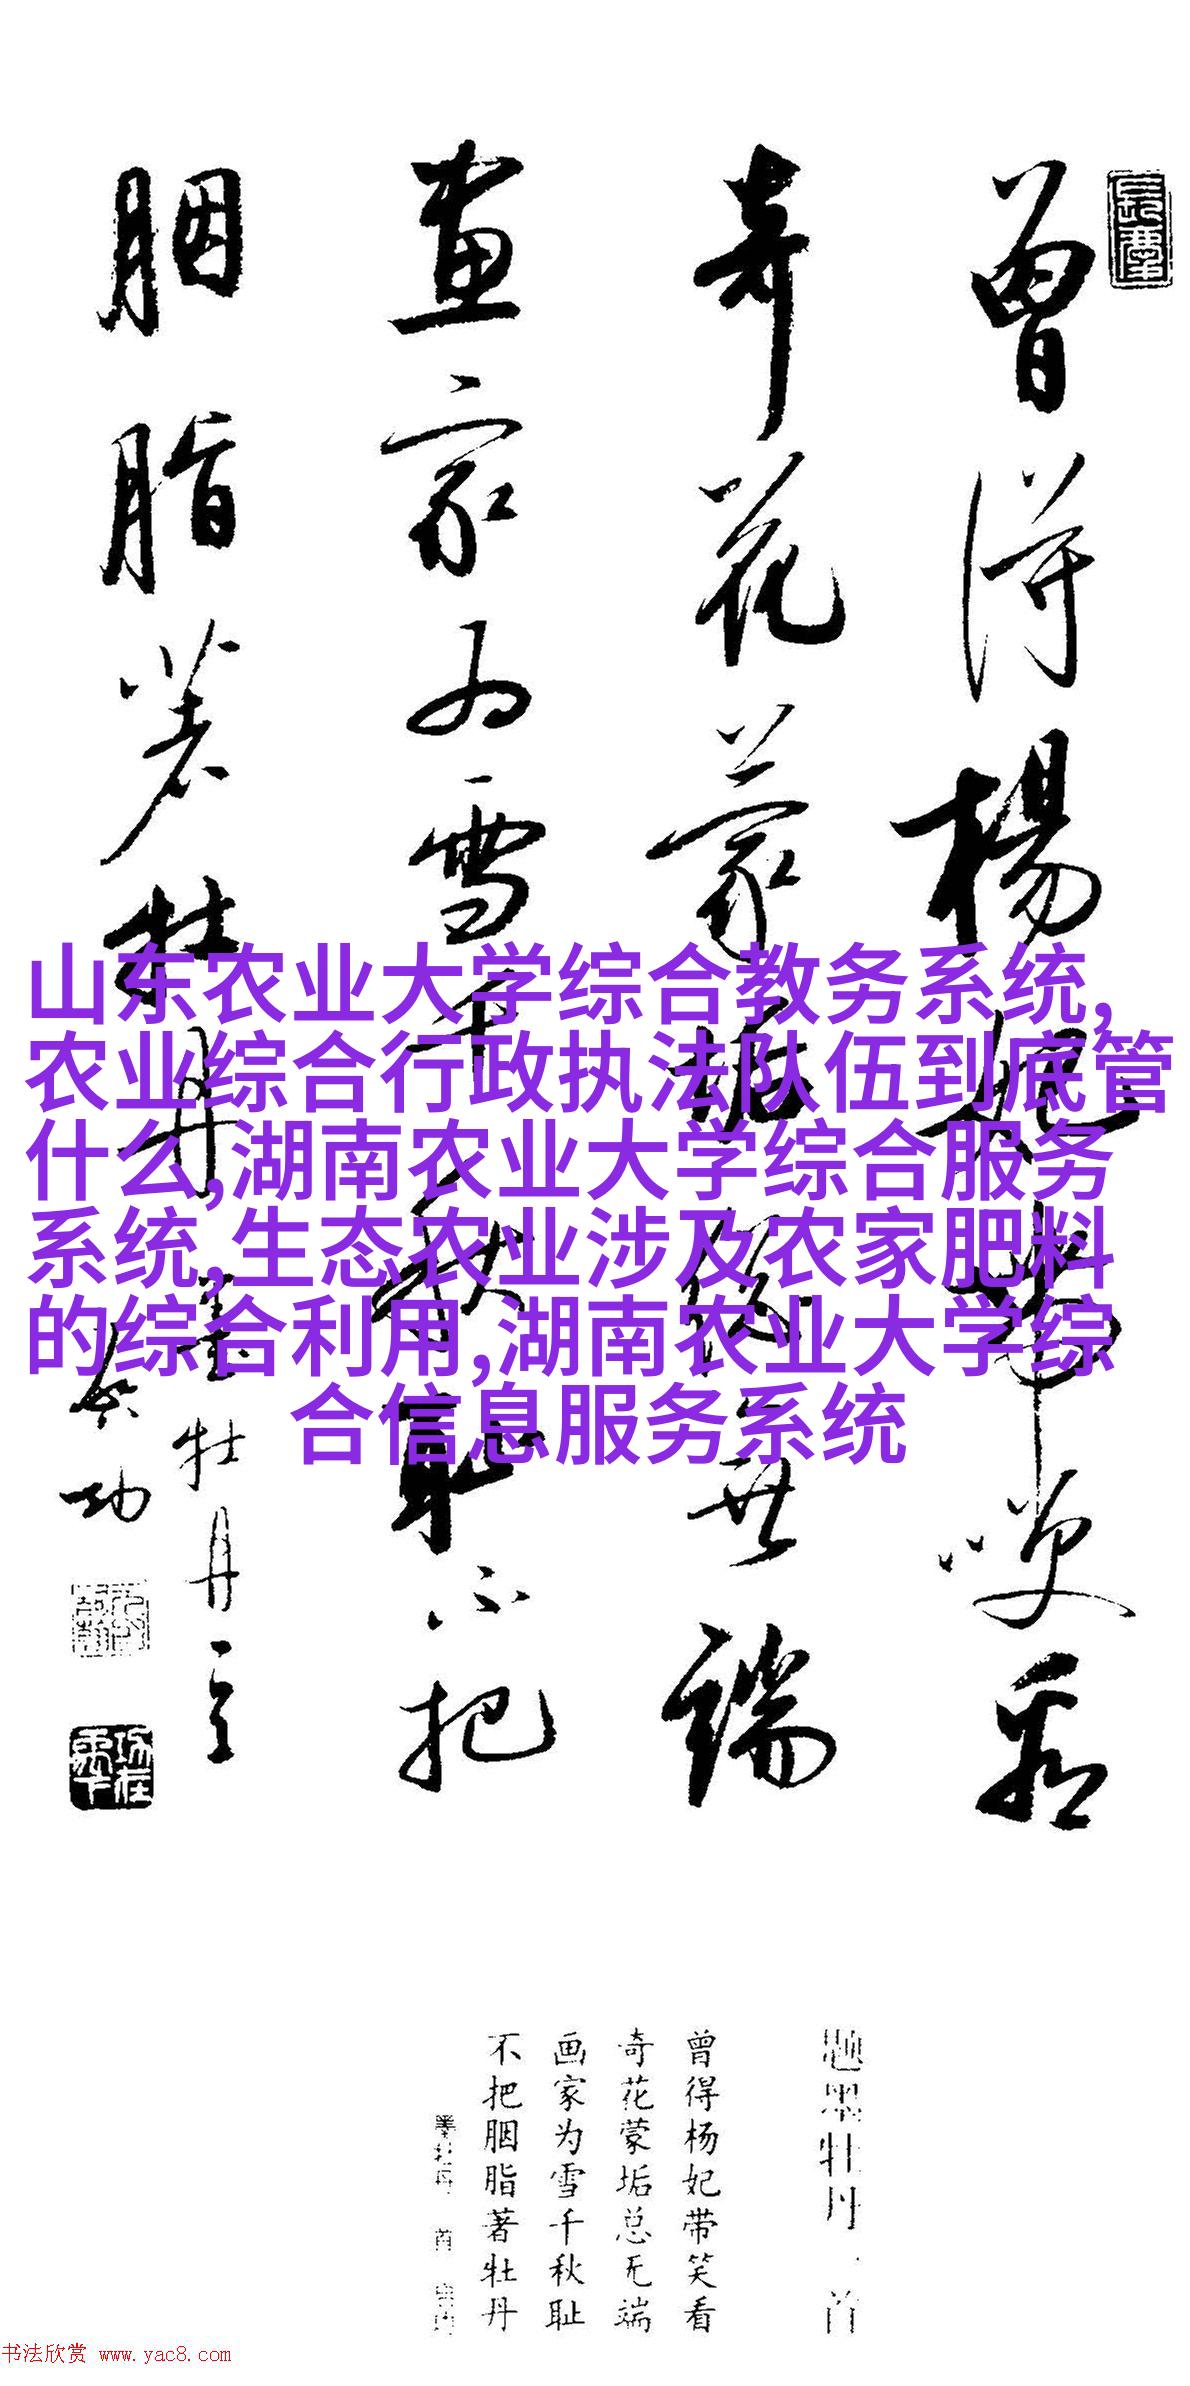 曾得楊妃帶笑看
奇花蒙垢總無端
畫家為雪千秋耻不把
胭脂著牡丹
墨牡丹一首
启功
山东农业大学综合教务系统,
农业综合行政执法队伍到底管
什么,湖南农业大学综合服务
系统,生态农业涉及农家肥料
的综合利用,湖南农业大学综
合信息服务系统
题墨牡丹一首
曾得杨妃带笑看
奇花蒙垢总无端
画家为雪千秋耻
不把胭脂著牡丹
书法欣赏 www.yac8.com